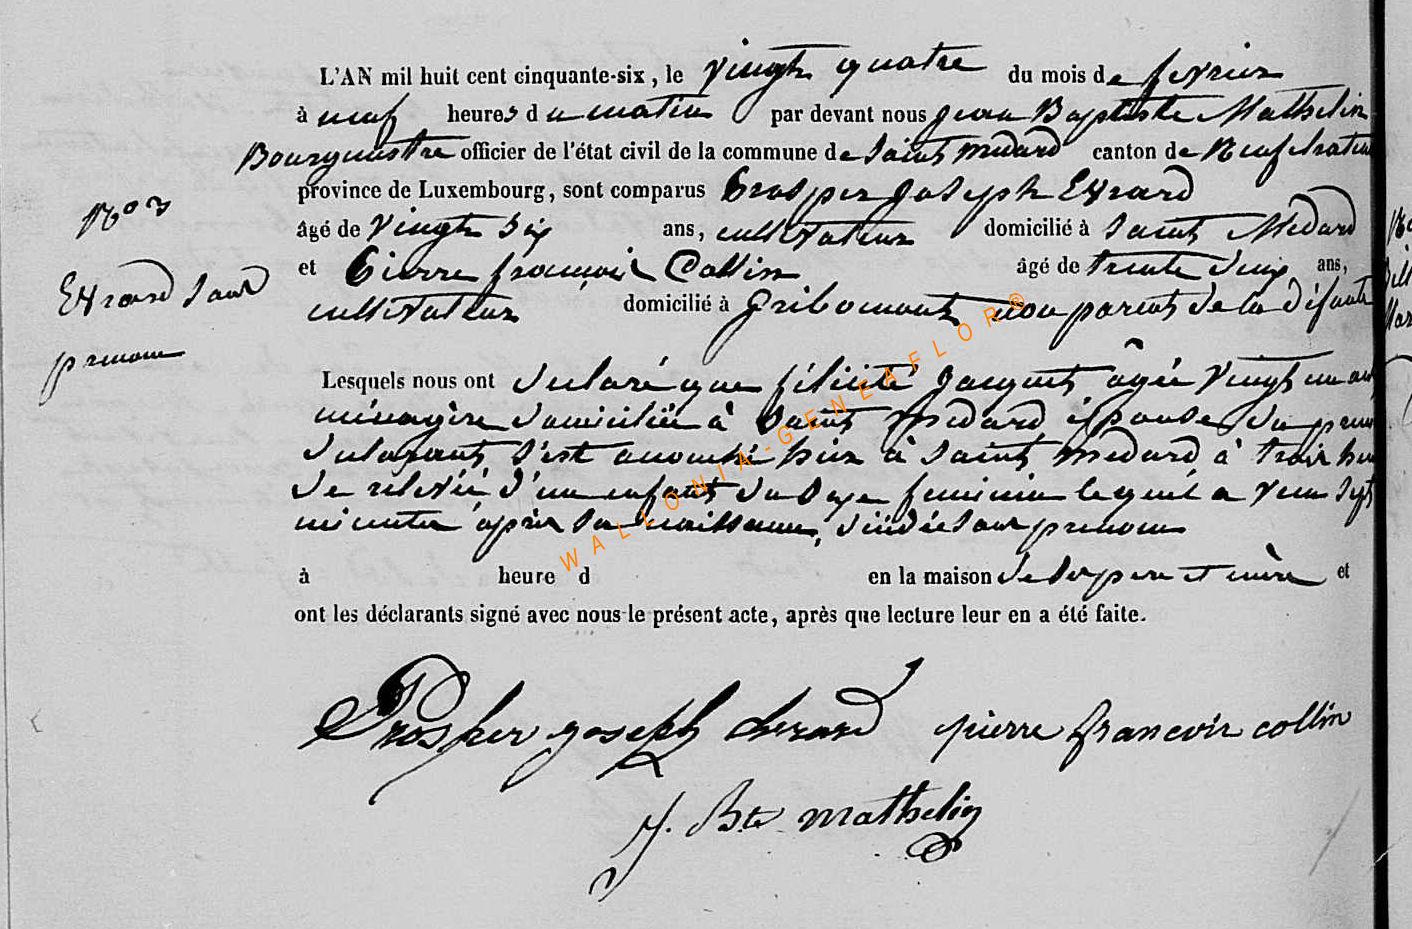 L'AN mil huit cent cinquante-six, le vingt quatre du mois de fevrier
à neuf heures du matin par devant nous jean Baptiste Mathelin
Bourgmestre officier de l'état civil de la commune de Saint Médard canton de Neufchateau
province de Luxembourg, sont comparus Prosper Joseph Evrard
No 3
âgé de vingt six ans, cultivateur domicilié à Saint Médard
Evrard sans
et Pierre françois Collin âgé de trente deux ans,
cultivateur domicilié à Gribomont non parent de la défunte
prenom
Lesquels nous ont déclaré que félicité Jacquet âgée vingt un ans
ménagère domiciliée à Saint Médard épouse du premier
déclarant s'est accouchée hier à Saint Médard à trois heures
de relevée d'un enfant du sexe feminin lequel a vecu sept
minutes après sa naissance, décédée sans prenom
à heure d en la maison de ses pere et mère et
ont les déclarants signé avec nous le présent acte, après que lecture leur en a été faite.
Prosper joseph Evrard pierre françois collin
J. Bte mathelin
WALLONIA-GENEAFLOR®